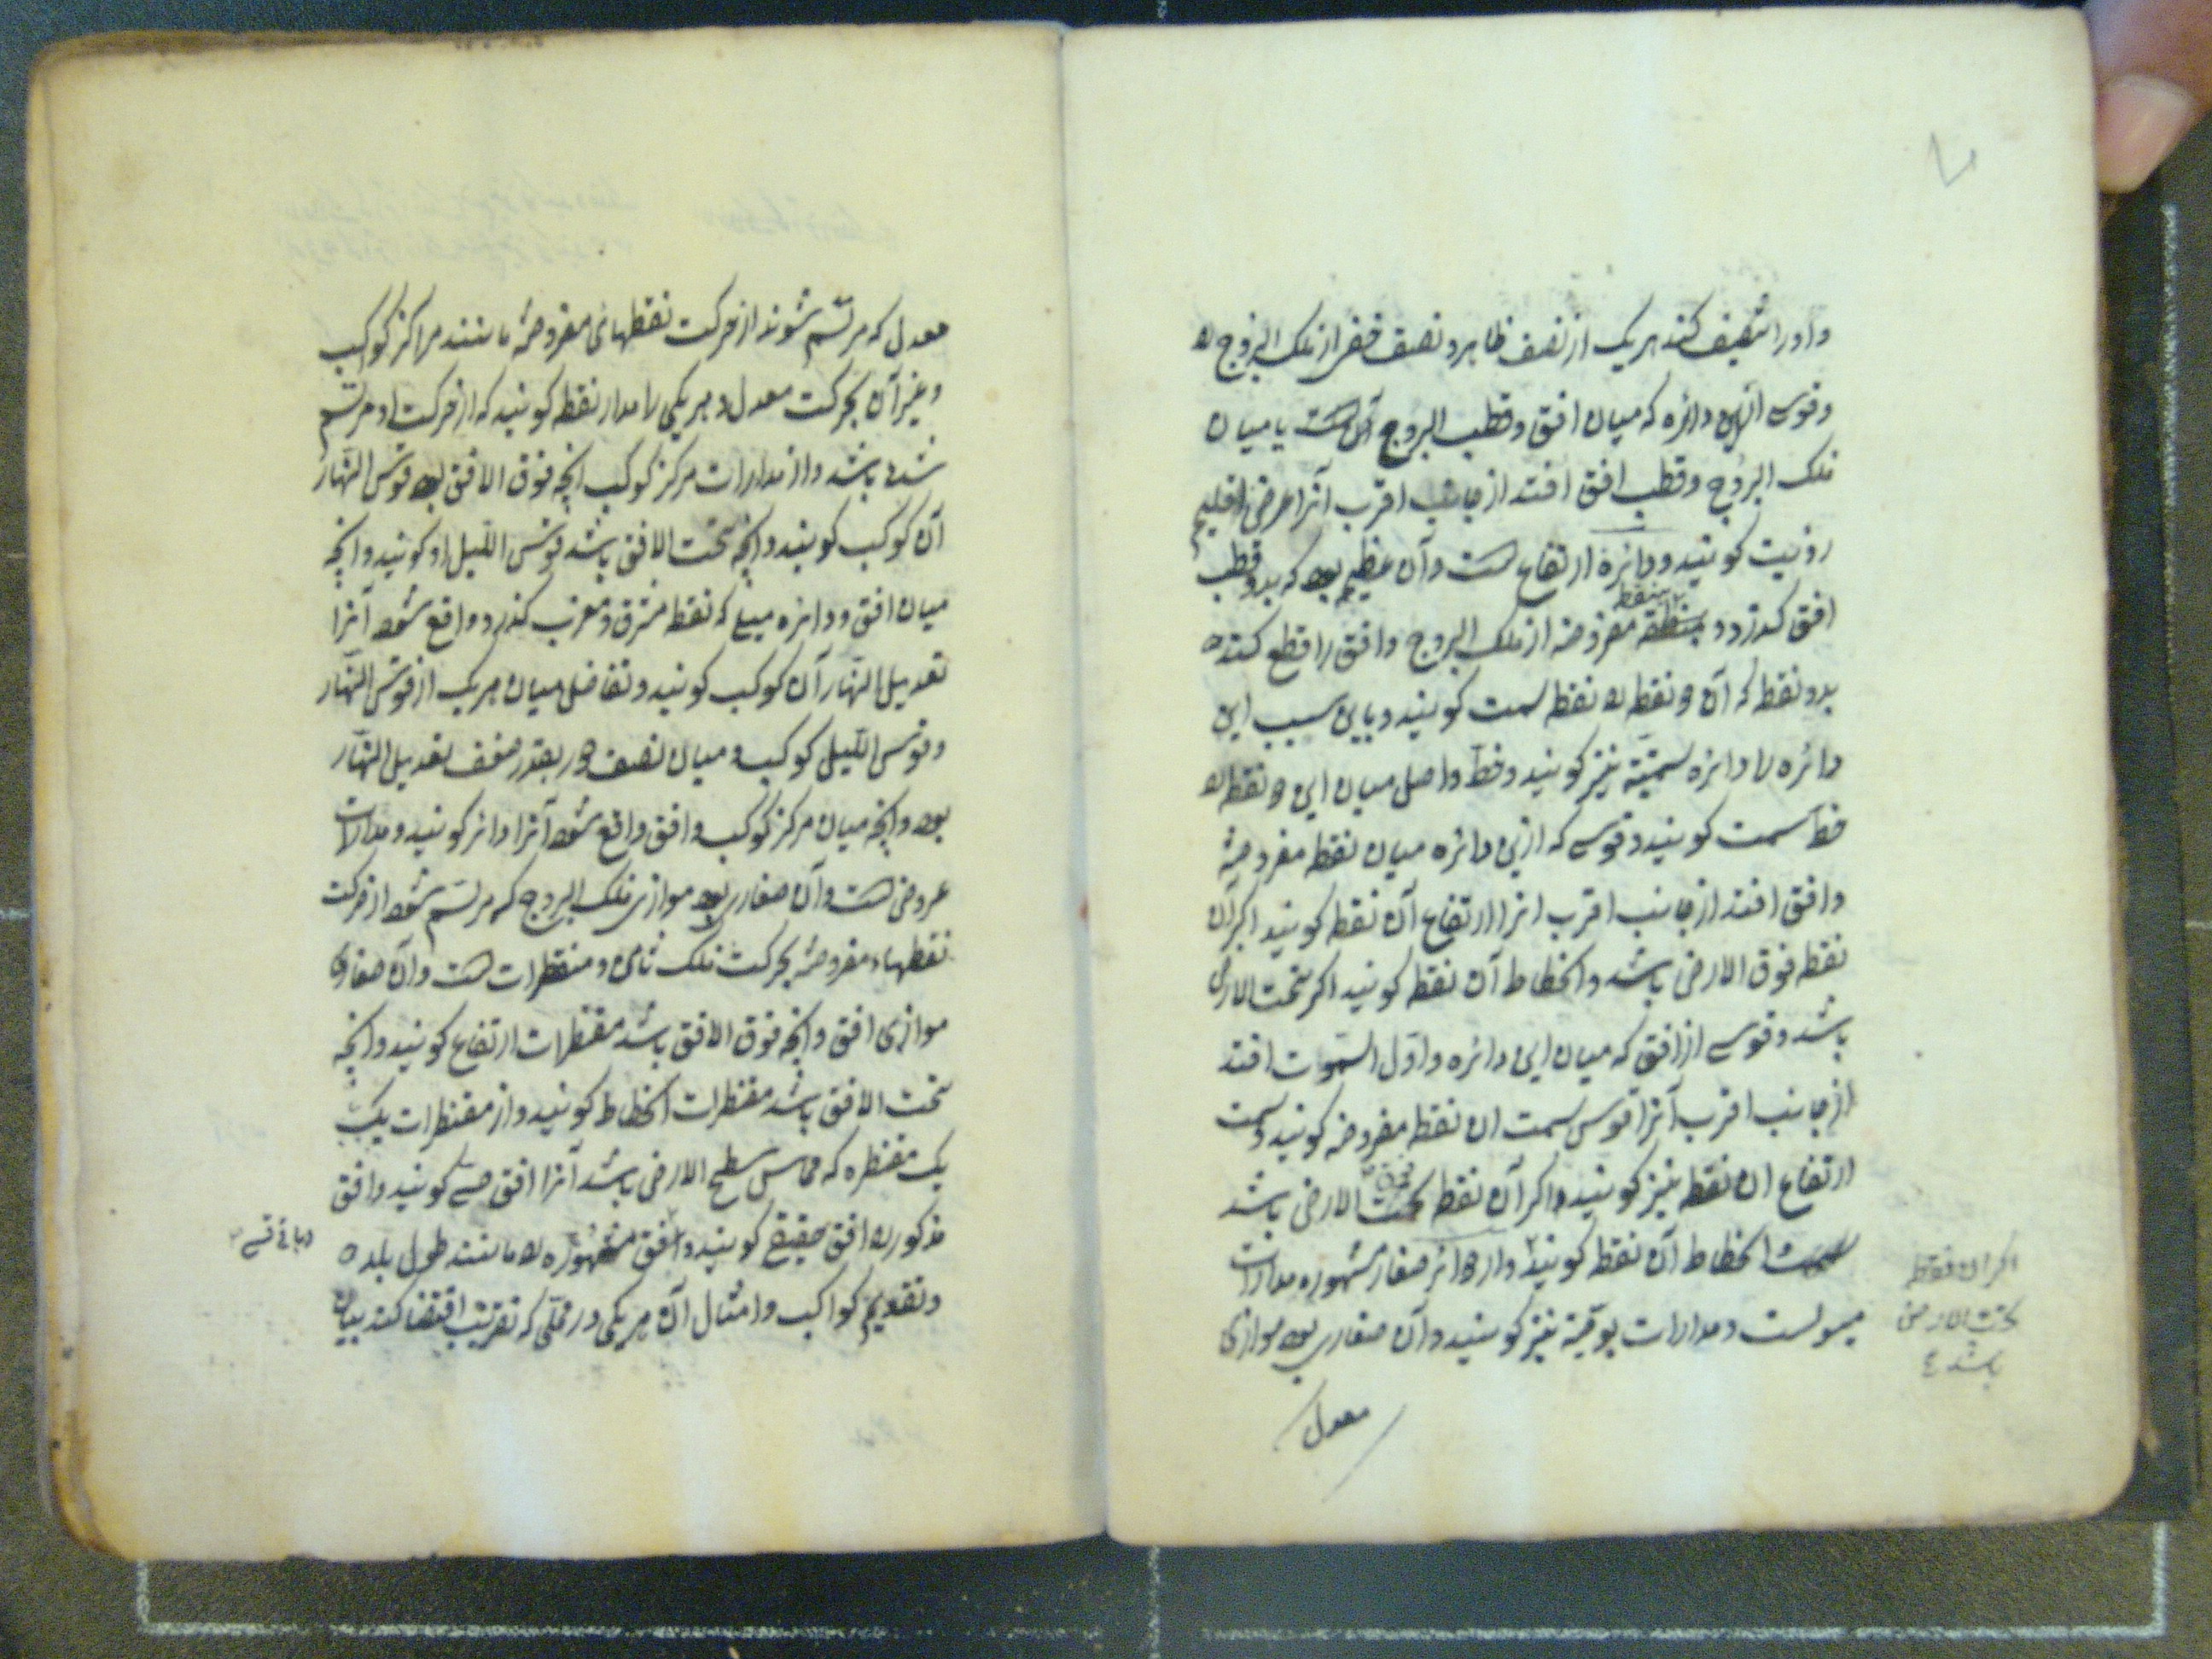 و او را تنصیف کند هر یک از نصف ظاهر و نصف خفی از فلک البروج را
و قوسی ازین دائره که میان افق و قطب البروج است یا میان
فلک البروج و قطب افق افتد از جانب اقرب آنرا عرض اقلیم
رؤیت کویند و دائرهٔ ارتفاع است و آن عظیمه بود که بدو قطب
افق کذرد و بنقطه مفروضه از فلک البروج و افق را قطع کند
بدو نقطه که آن دو نقطه را نقطه سمت کویند و باین سبب این
دائره را دائره سمتیه نیز کویند و خط واصل میان این دو نقطه را
خط سمت کویند و قوسی که ازین دائره میان نقطه مفروضه
و افق افتد از جانب اقرب انرا ارتفاع آن نقطه کویند اکر آن
نقطه فوق الارض باشد و انحطاط آن نقطه کویند اکر تحت الارض
باشد و قوسی از افق که میان این دائره و اول السموت افتد
از جانب اقرب آنرا قوس سمت ان نقطه مفروضه کویند و سمت
ارتفاع ان نقطه نیز کویند و اکر آن نقطه تحت الارض باشد
سمت انحطاط آن نقطه کویند و از دوائر صغار مشهوره مدارات
میولست و مدارات یومیه نیز کویند و آن صغاری بود موازی
معدل
اکر ان نقطه
تحت الارض
باشد
معدل که مرتسم شوند از حرکت نقطهائی مفروضه مانند مراکز کواکب
و غیر آن بحرکت معدل و هر یکی را مدار نقطه کویند که از حرکت او مرتسم
شده باشد و از مدارات مرکز کوکب انچه فوق الافق بود قوس النهار
آن کوکب کویند و انچه تحت الافق باشد قوس اللیل او کویند و انچه
میان افق و دائره میلی که نقطه مشرق و مغرب کذرد واقع شود آنرا
تعدیل النهار آن کوکب کویند و تفاضل میان هر یک از قوس النهار
و قوس اللیل کوکب و میان نصف دور بقدر ضعف تعدیل النهار
بود و انچه میان مرکز کوکب و افق واقع شود آنرا دائر کویند و مدارات
عروض است و آن صغاری بود موازی فلک البروج که مرتسم شود از حرکت
نقطهاء مفروضه بحرکت فلک ثامن و مقنطرات است و آن صغاری
موازی افق و انچه فوق الافق باشد مقنطرات ارتفاع کویند و انچه
تحت الافق باشد مقنطرات انحطاط کویند و از مقنطرات یک
یک مقنطره که مماس سطح الارض باشد آنرا افق حسی کویند و افق
مذکور را افق حقیقی کویند و افق مشهوره را مانند طول بلده
و تقویم کواکب و امثال آن هر یکی در محلی که تقریب اقتضا کند بیان